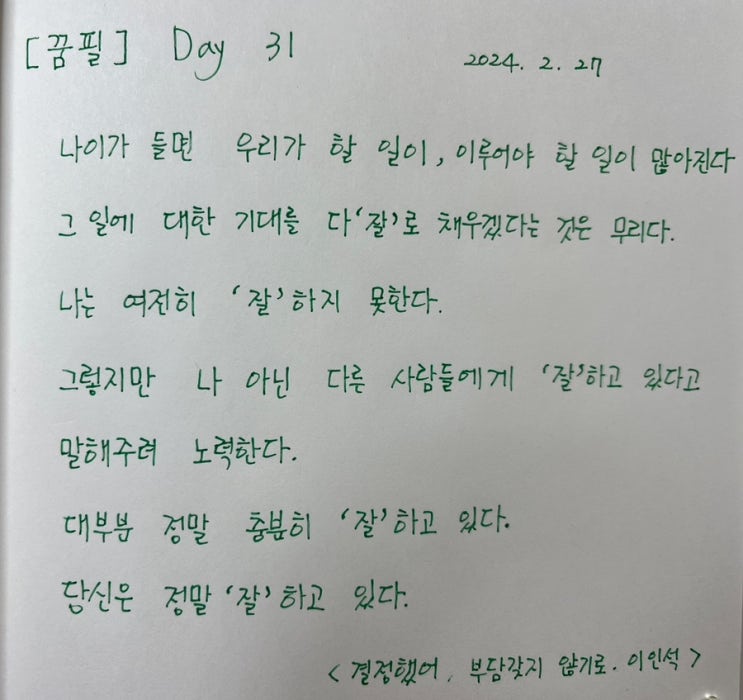 [꿈필] Day 31 2024. 2. 27
나이가 들면 우리가 할 일이, 이루어야 할 일이 많아진다
그 일에 대한 기대를 다 '잘'로 채우겠다는 것은 무리다.
나는 여전히 '잘'하지 못한다.
그렇지만 나 아닌 다른 사람들에게 '잘'하고 있다고
말해주려 노력한다.
대부분 정말 충분히 '잘'하고 있다.
당신은 정말 '잘'하고 있다.
< 결정했어, 부담갖지 않기로. 이인석 >